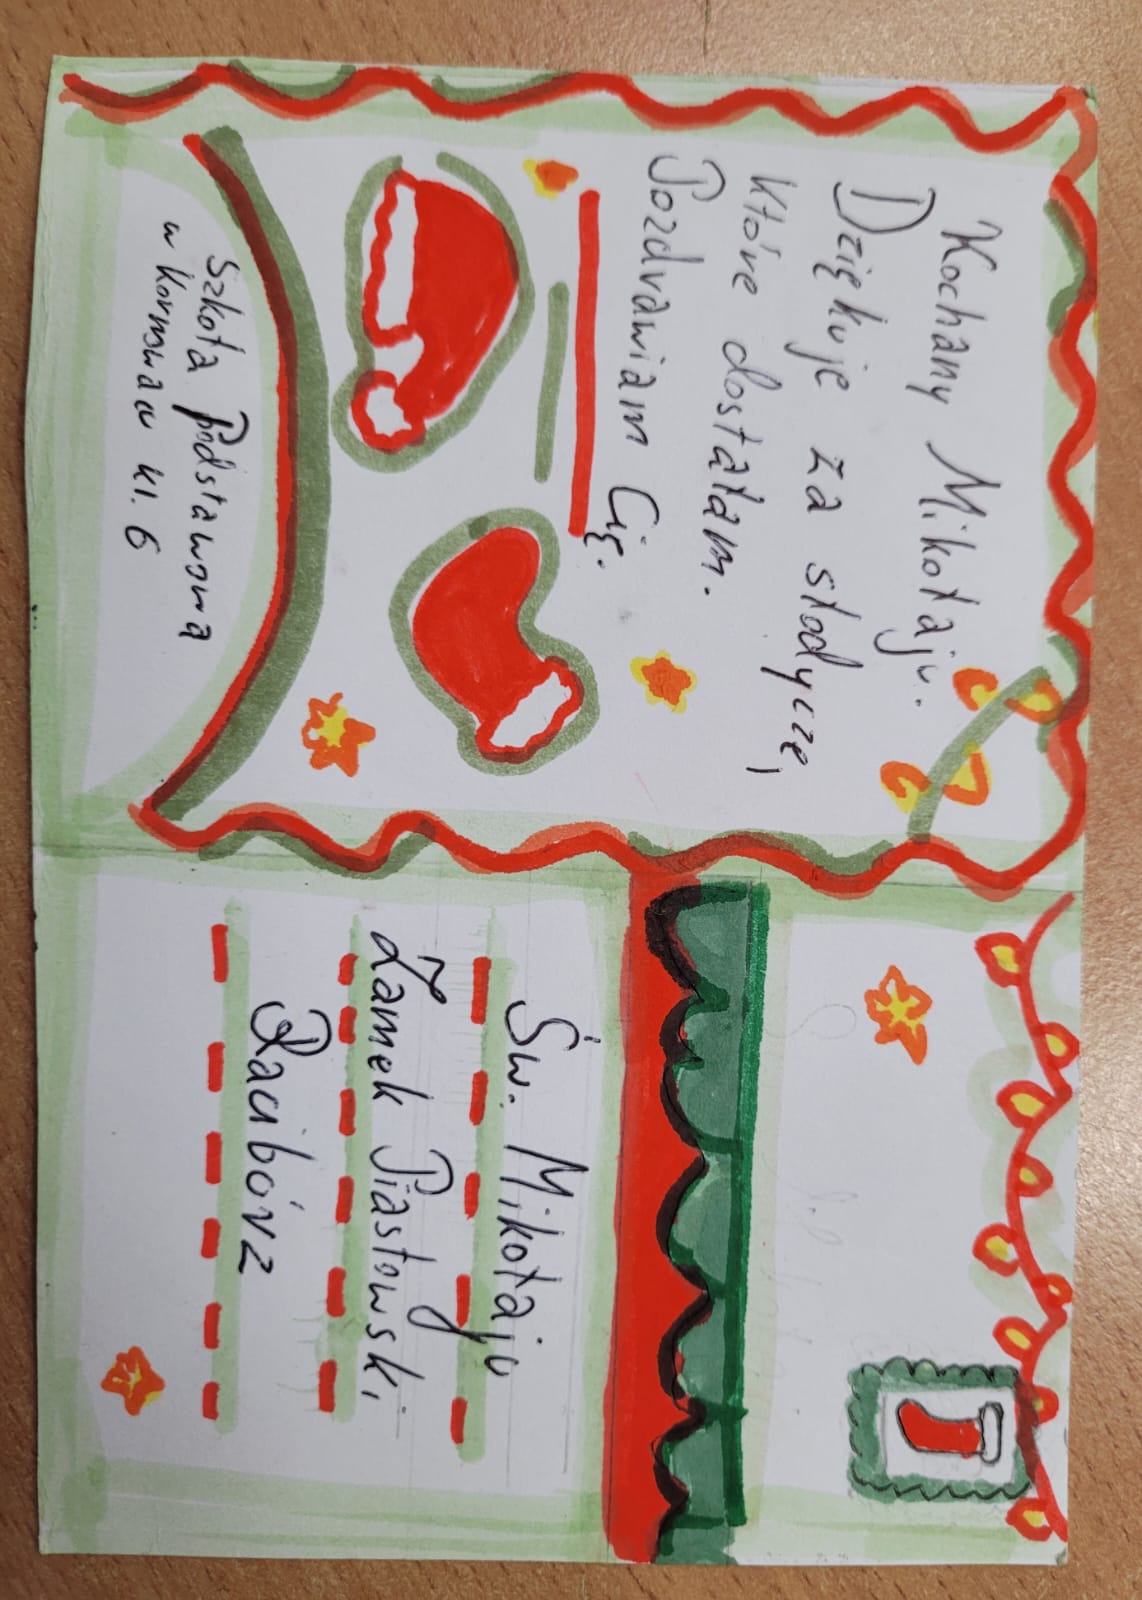 Kochany Mikołaju.
Dziękuje za słodycze,
które dostałam.
Pozdrawiam Cię.
Szkoła Podstawowa
w Kornowacu kl. 6
Św. Mikołaju
Zamek Piastowski
Racibórz